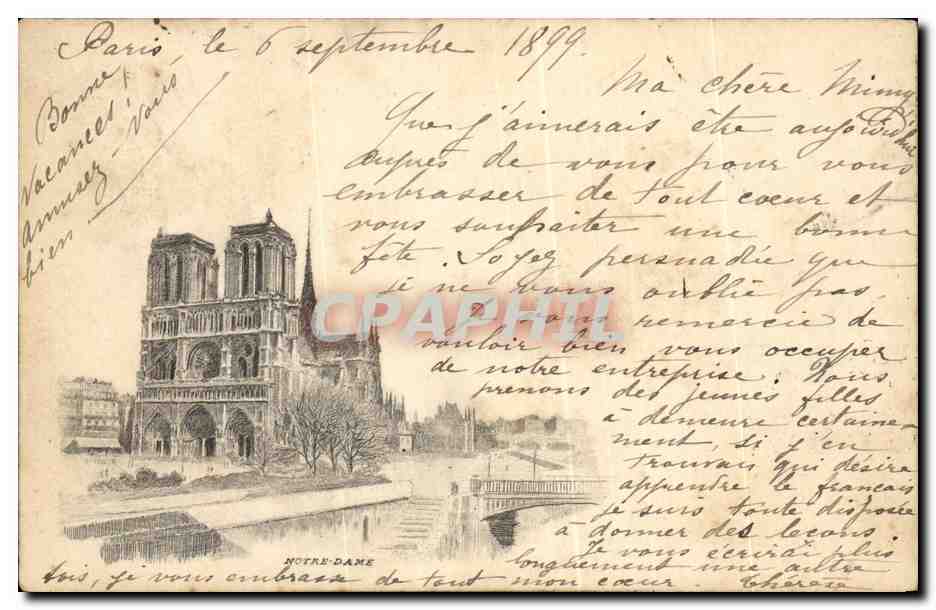 Paris, le 6 septembre 1899.
Bonne
Vacances!
amusez-vous
bien
Ma chère Mimy
Que j'aimerais être aujourd'hui
auprès de vous pour vous
embrasser de tout cœur et
vous souhaiter une bonne
fête. Soyez persuadée que
je ne vous oublie pas.
Je vous remercie de
vouloir bien vous occuper
de notre entreprise. Nous
prenons des jeunes filles
à demeure certaine-
ment, si j'en
trouvais qui désire
apprendre le français
je suis toute disposée
à donner des leçons
Je vous écrirai plus
longuement une autre
fois, je vous embrasse de tout mon cœur. Thérèse
NOTRE-DAME
CPAPHIL